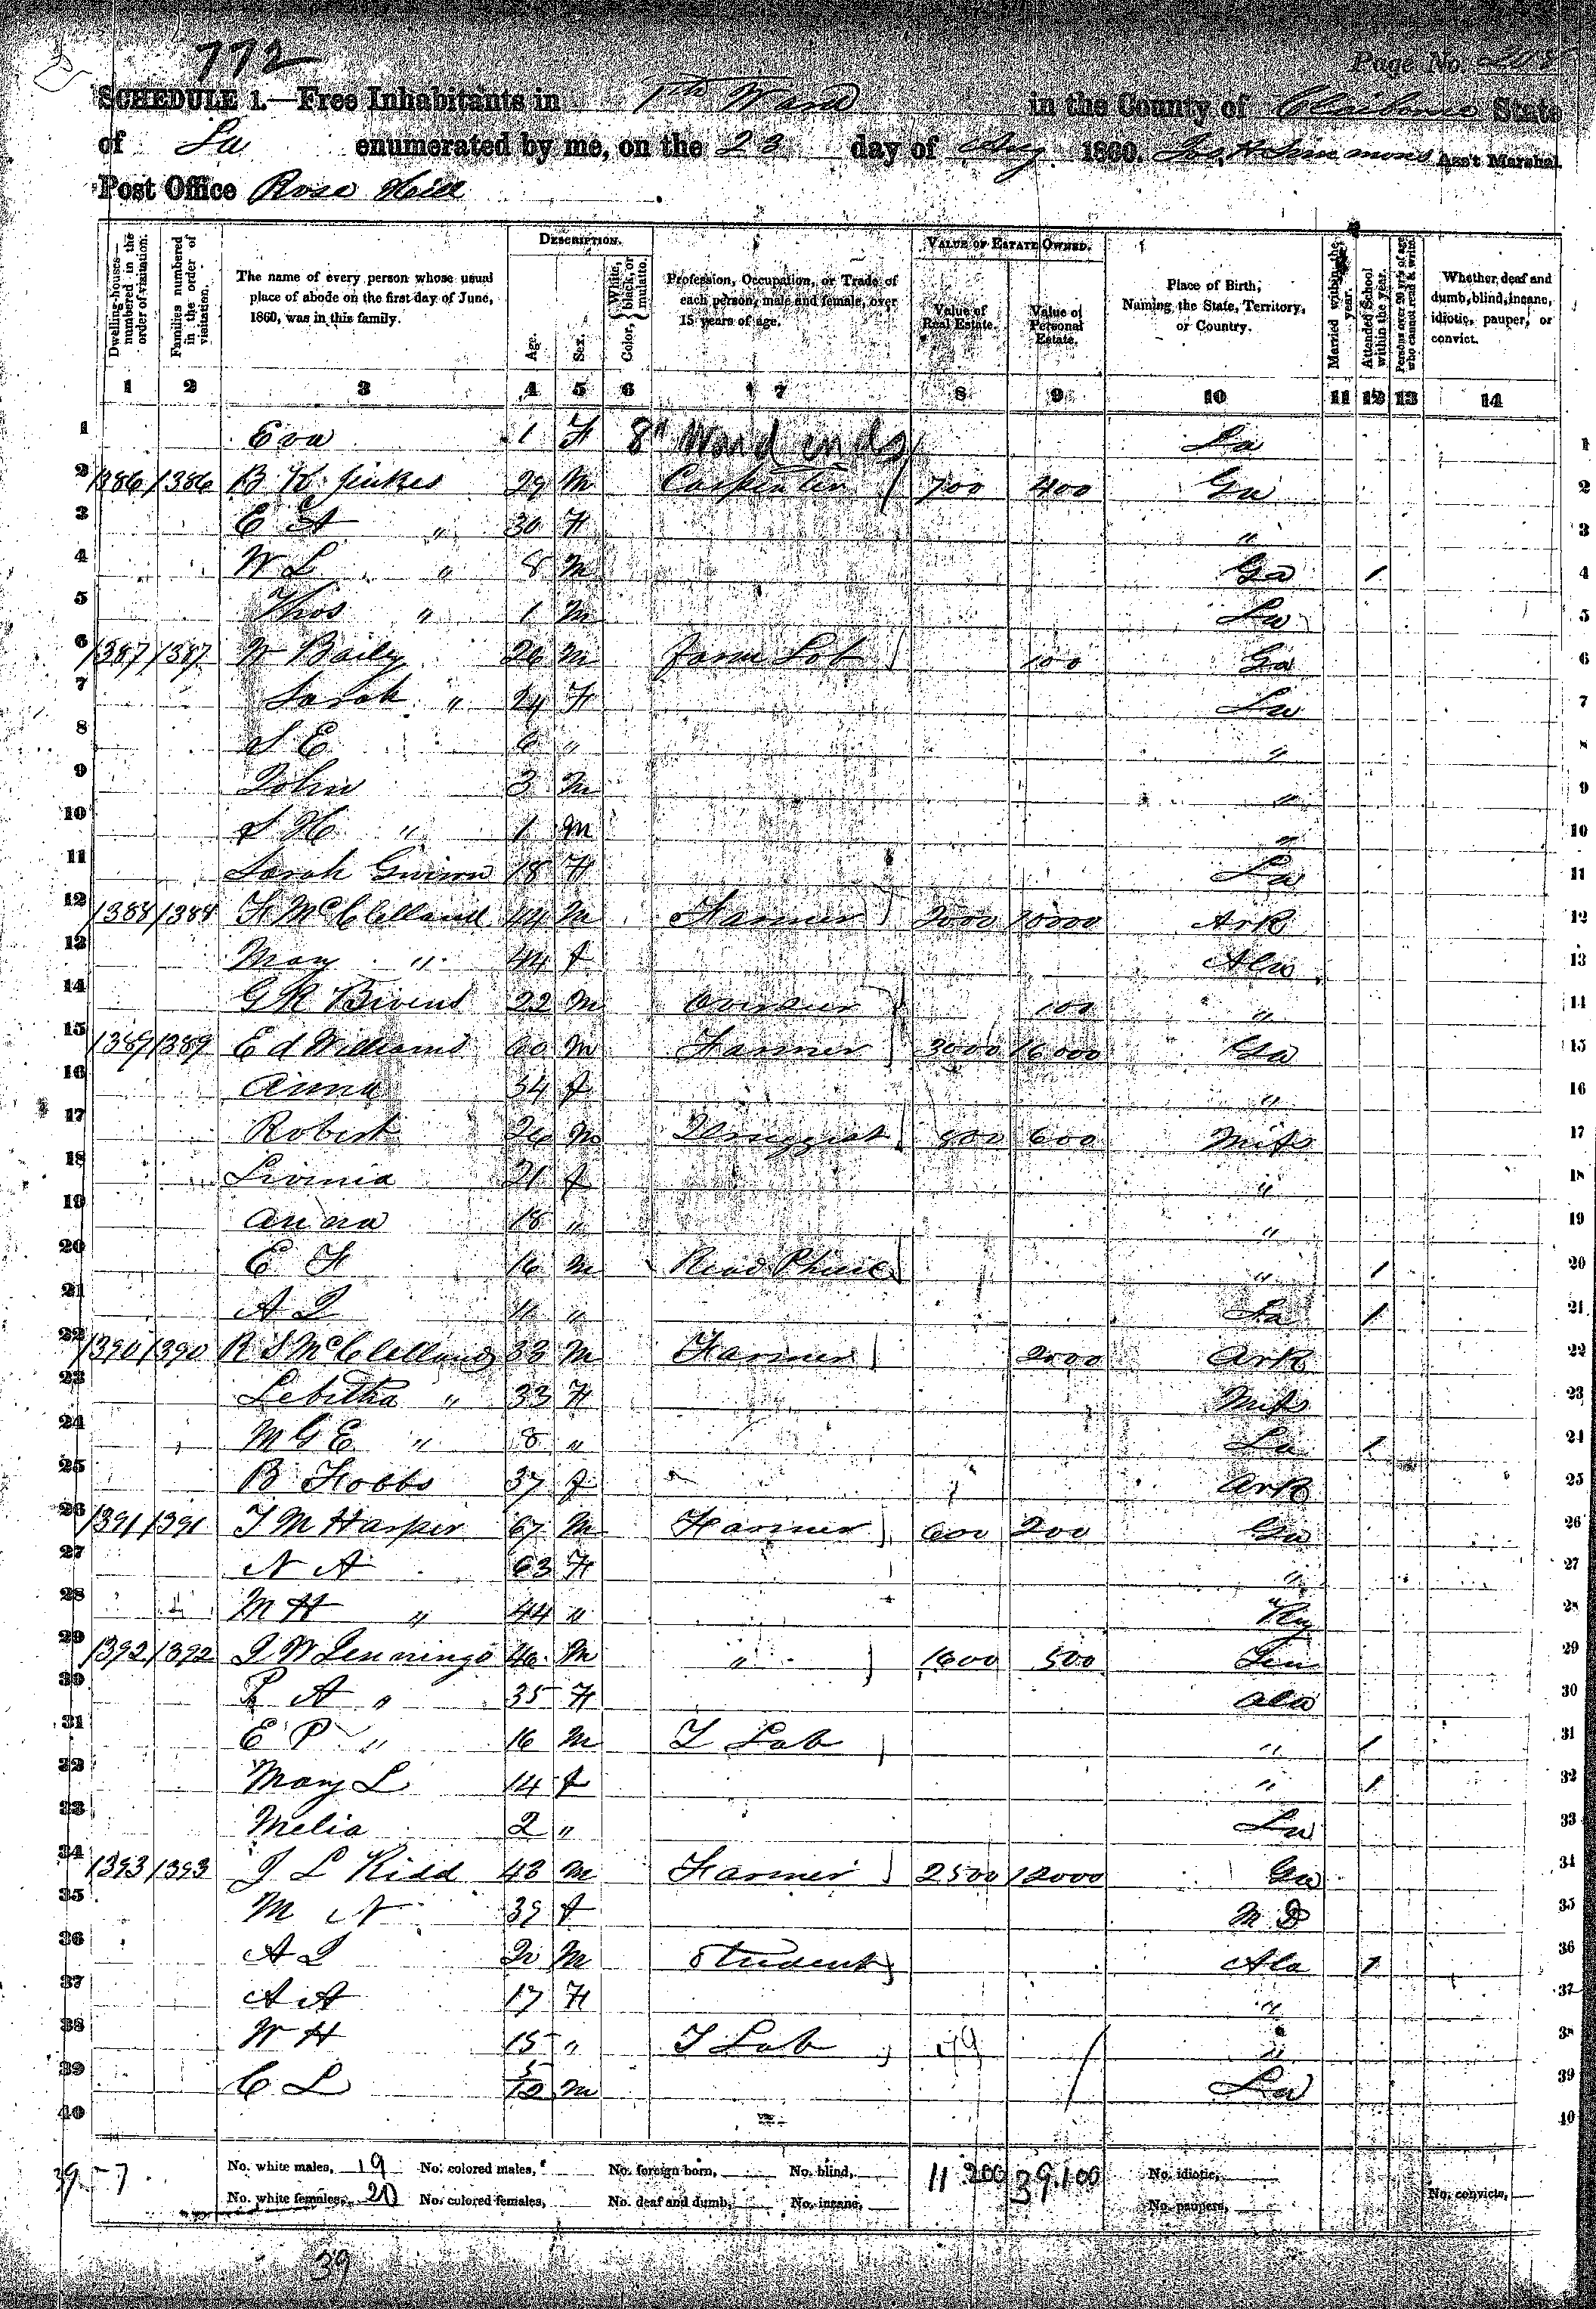 772
Page No. 208
SCHEDULE 1.—Free Inhabitants in 7th Ward in the County of Claiborne State
of La enumerated by me, on the 23 day of Aug 1860. Jos. H Simmons Ass't Marshal.
Post Office Rose Hill
DESCRIPTION. VALUE OF ESTATE OWNED.
Dwelling-houses—numbered in the order of visitation. Families numbered in the order of visitation. The name of every person whose usual place of abode on the first day of June, 1860, was in this family. Age. Sex. Color, White, black, or mulatto. Profession, Occupation, or Trade of each person, male and female, over 15 years of age. Value of Real Estate. Value of Personal Estate. Place of Birth, Naming the State, Territory, or Country. Married within the year. Attended School within the year. Persons over 20 y'rs of age who cannot read & write. Whether deaf and dumb, blind, insane, idiotic, pauper, or convict.
1 2 3 4 5 6 7 8 9 10 11 12 13 14
1 Eva 1 F 8" Ward ends La 1
2 1386 1386 B K Jinkes 29 M Carpenter 700 400 Ga 2
3 E A " 30 F " 3
4 W L " 8 M Ga / 4
5 Thos " 1 M La 5
6 1387 1387 W Baily 26 M Farm Lob 100 Ga 6
7 Sarah " 24 F La 7
8 S E 6 " " 8
9 John 3 M " 9
10 S H " 1 M " 10
11 Sarah Gwinn 18 F La 11
12 1388 1388 F McClelland 44 M Farmer 2000 10000 Ark 12
13 Mary " 44 f Ala 13
14 G R Bivens 22 M Overseer 100 " 14
15 1389 1389 E d Williams 60 M Farmer 3000 16000 Ga 15
16 Anna 54 f " 16
17 Robert 26 M Druggist 800 600 Miss 17
18 Livinia 21 f " 18
19 Anna 18 " " 19
20 E F 16 M " / 20
21 A J 11 " La / 21
22 1390 1390 R S McClelland 33 M Farmer 2000 Ark 22
23 Lebitha " 33 F Miss 23
24 M G E " 8 " La / 24
25 B Hobbs 37 f Ark 25
26 1391 1391 T M Harper 67 M Farmer 600 200 Ga 26
27 N A 63 F " 27
28 M H " 44 " Ky 28
29 1392 1392 J W Jennings 46 M " 1600 500 Ten 29
30 P A " 35 F Ala 30
31 E P " 16 M F Lab " / 31
32 Mary L 14 f " / 32
33 Melia 2 " La 33
34 1393 1393 J L Kidd 43 M Farmer 2500 12000 Ga 34
35 M N 39 f M D 35
36 A J 20 M Student Ala 1 36
37 A A 17 F " 37
38 W H 15 " F Lab 79 " 38
39 C L 5/12 M La 39
40 40
39 - 7 No. white males, 19 No. colored males, No. foreign born, No. blind, 11 200 39,100 No. idiotic,
No. white females, 20 No. colored females, No. deaf and dumb, No. insane, No. paupers, No. convicts,
39